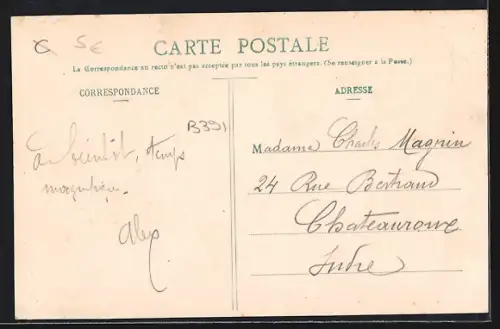 5€
CARTE POSTALE
La Correspondance au recto n'est pas acceptée par tous les pays étrangers. (Se renseigner à la Poste.)
CORRESPONDANCE
B391
à bientôt, temps
magnifique.
Alex
ADRESSE
Madame Charles Magnin
24 Rue Bertrand
Chateauroux
Indre